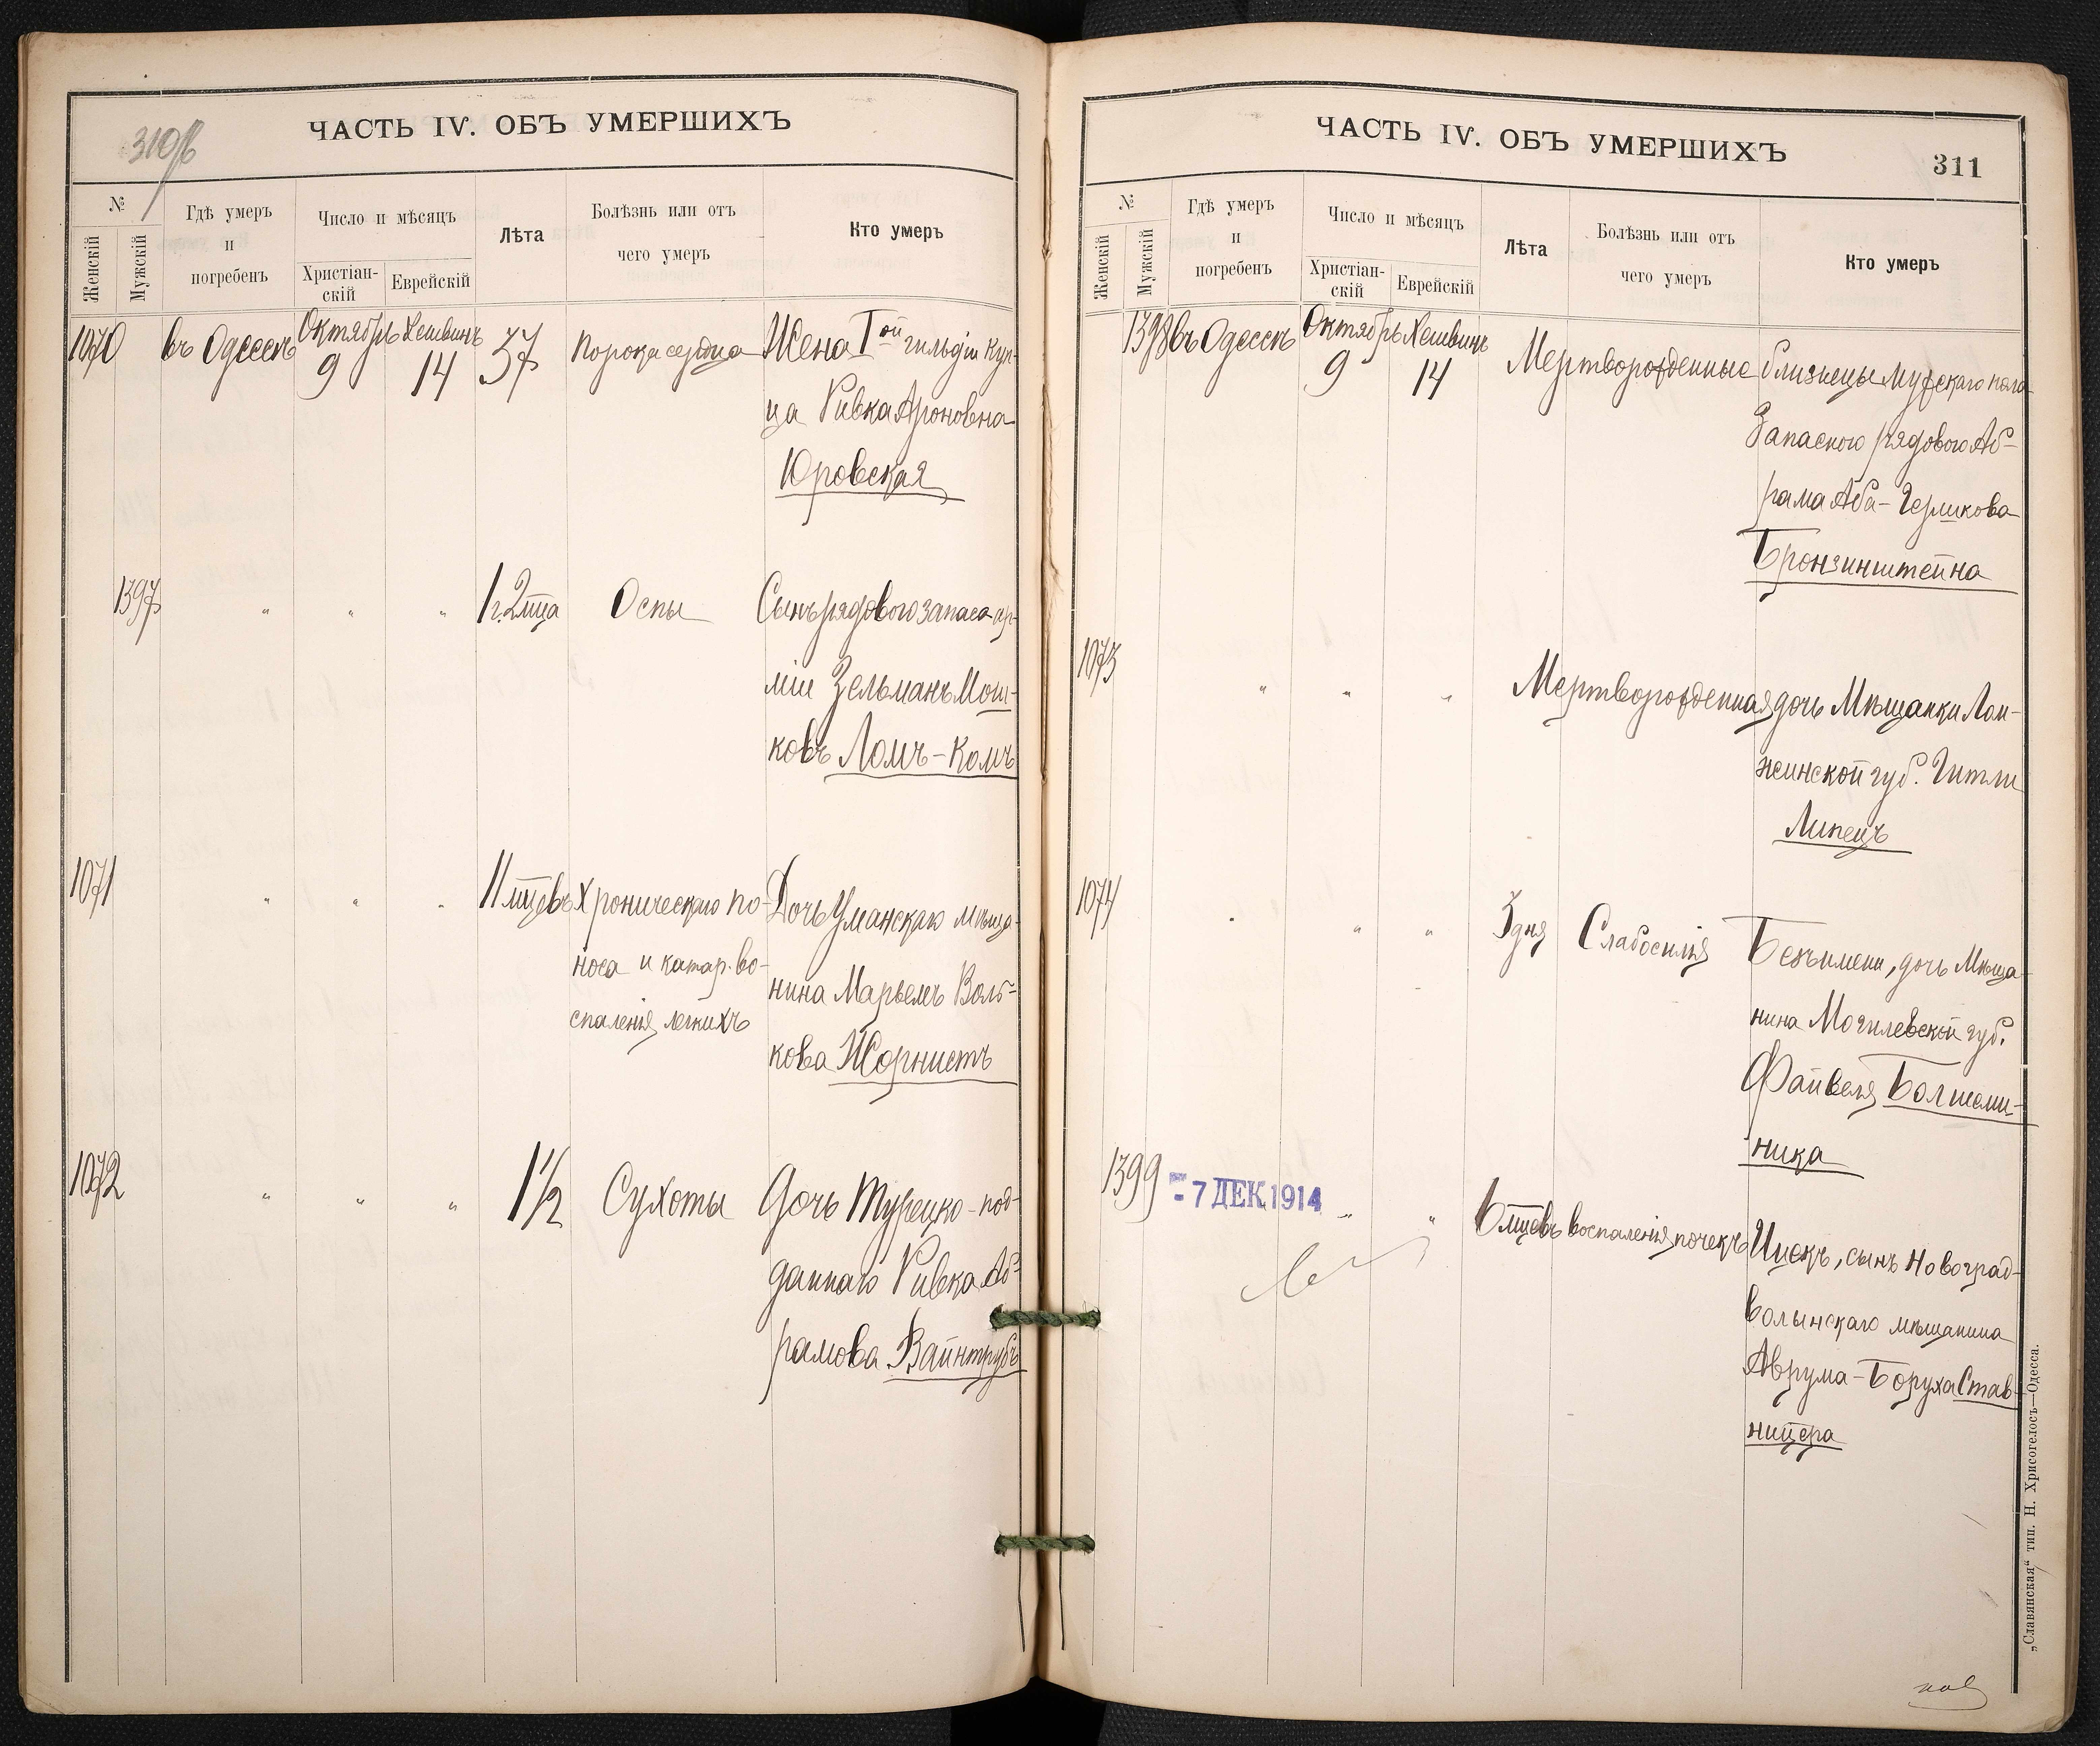 310/б
ЧАСТЬ IV. ОБЪ УМЕРШИХЪ
№
Женскій
Мужскій
Гдѣ умеръ
и
погребенъ
Число и мѣсяцъ
Христіан-
скій
Еврейскій
Лѣта
Болѣзнь или отъ
чего умеръ
Кто умеръ
1070 въ Одессѣ Октябрь 9 Хешвинъ 14 37 порока сердца Жена Iой гильдіи куп-
ца Ривка Ароновна
Юровская
1397 " " " 1 г. 2 мца Оспы Сынъ рядового запаса ар-
міи Зельманъ Мош-
ковъ Ломъ-Комъ
1071 " " " 11 мцевъ Хроническаго по- Дочь Уманскаго мѣща-
носа и катар. во- нина Марьемъ Воль-
спаленія легкихъ кова Жорнистъ
1072 " " " 1 1/2 Сухоты Дочь Турецко-под-
даннаго Ривка Аб-
рамова Вайнтрубъ
ЧАСТЬ IV. ОБЪ УМЕРШИХЪ
311
№
Женскій
Мужскій
Гдѣ умеръ
и
погребенъ
Число и мѣсяцъ
Христіан-
скій
Еврейскій
Лѣта
Болѣзнь или отъ
чего умеръ
Кто умеръ
1398 въ Одессѣ Октябрь 9 Хешвинъ 14 Мертворожденные близнецы мужскаго пола
Запасного рядового Аб-
рама Аба-Герликова
Бронзинштейна
1073 " " " Мертворожденная дочь Мѣщанки Лом-
жинской губ. Гитли
Липецъ
1074 " " " 3 дня Слабосилія Безъ имени, дочь Мѣща-
нина Могилевской губ.
Файвеля Болшеми-
ника
1399 - 7 ДЕК 1914 " " 6 мцевъ воспаленія почекъ Ицекъ, сынъ Новоград-
волынскаго мѣщанина
Аврума-Боруха Став-
ницера
„Славянская“ тип. Н. Хрисогелосъ—Одесса.